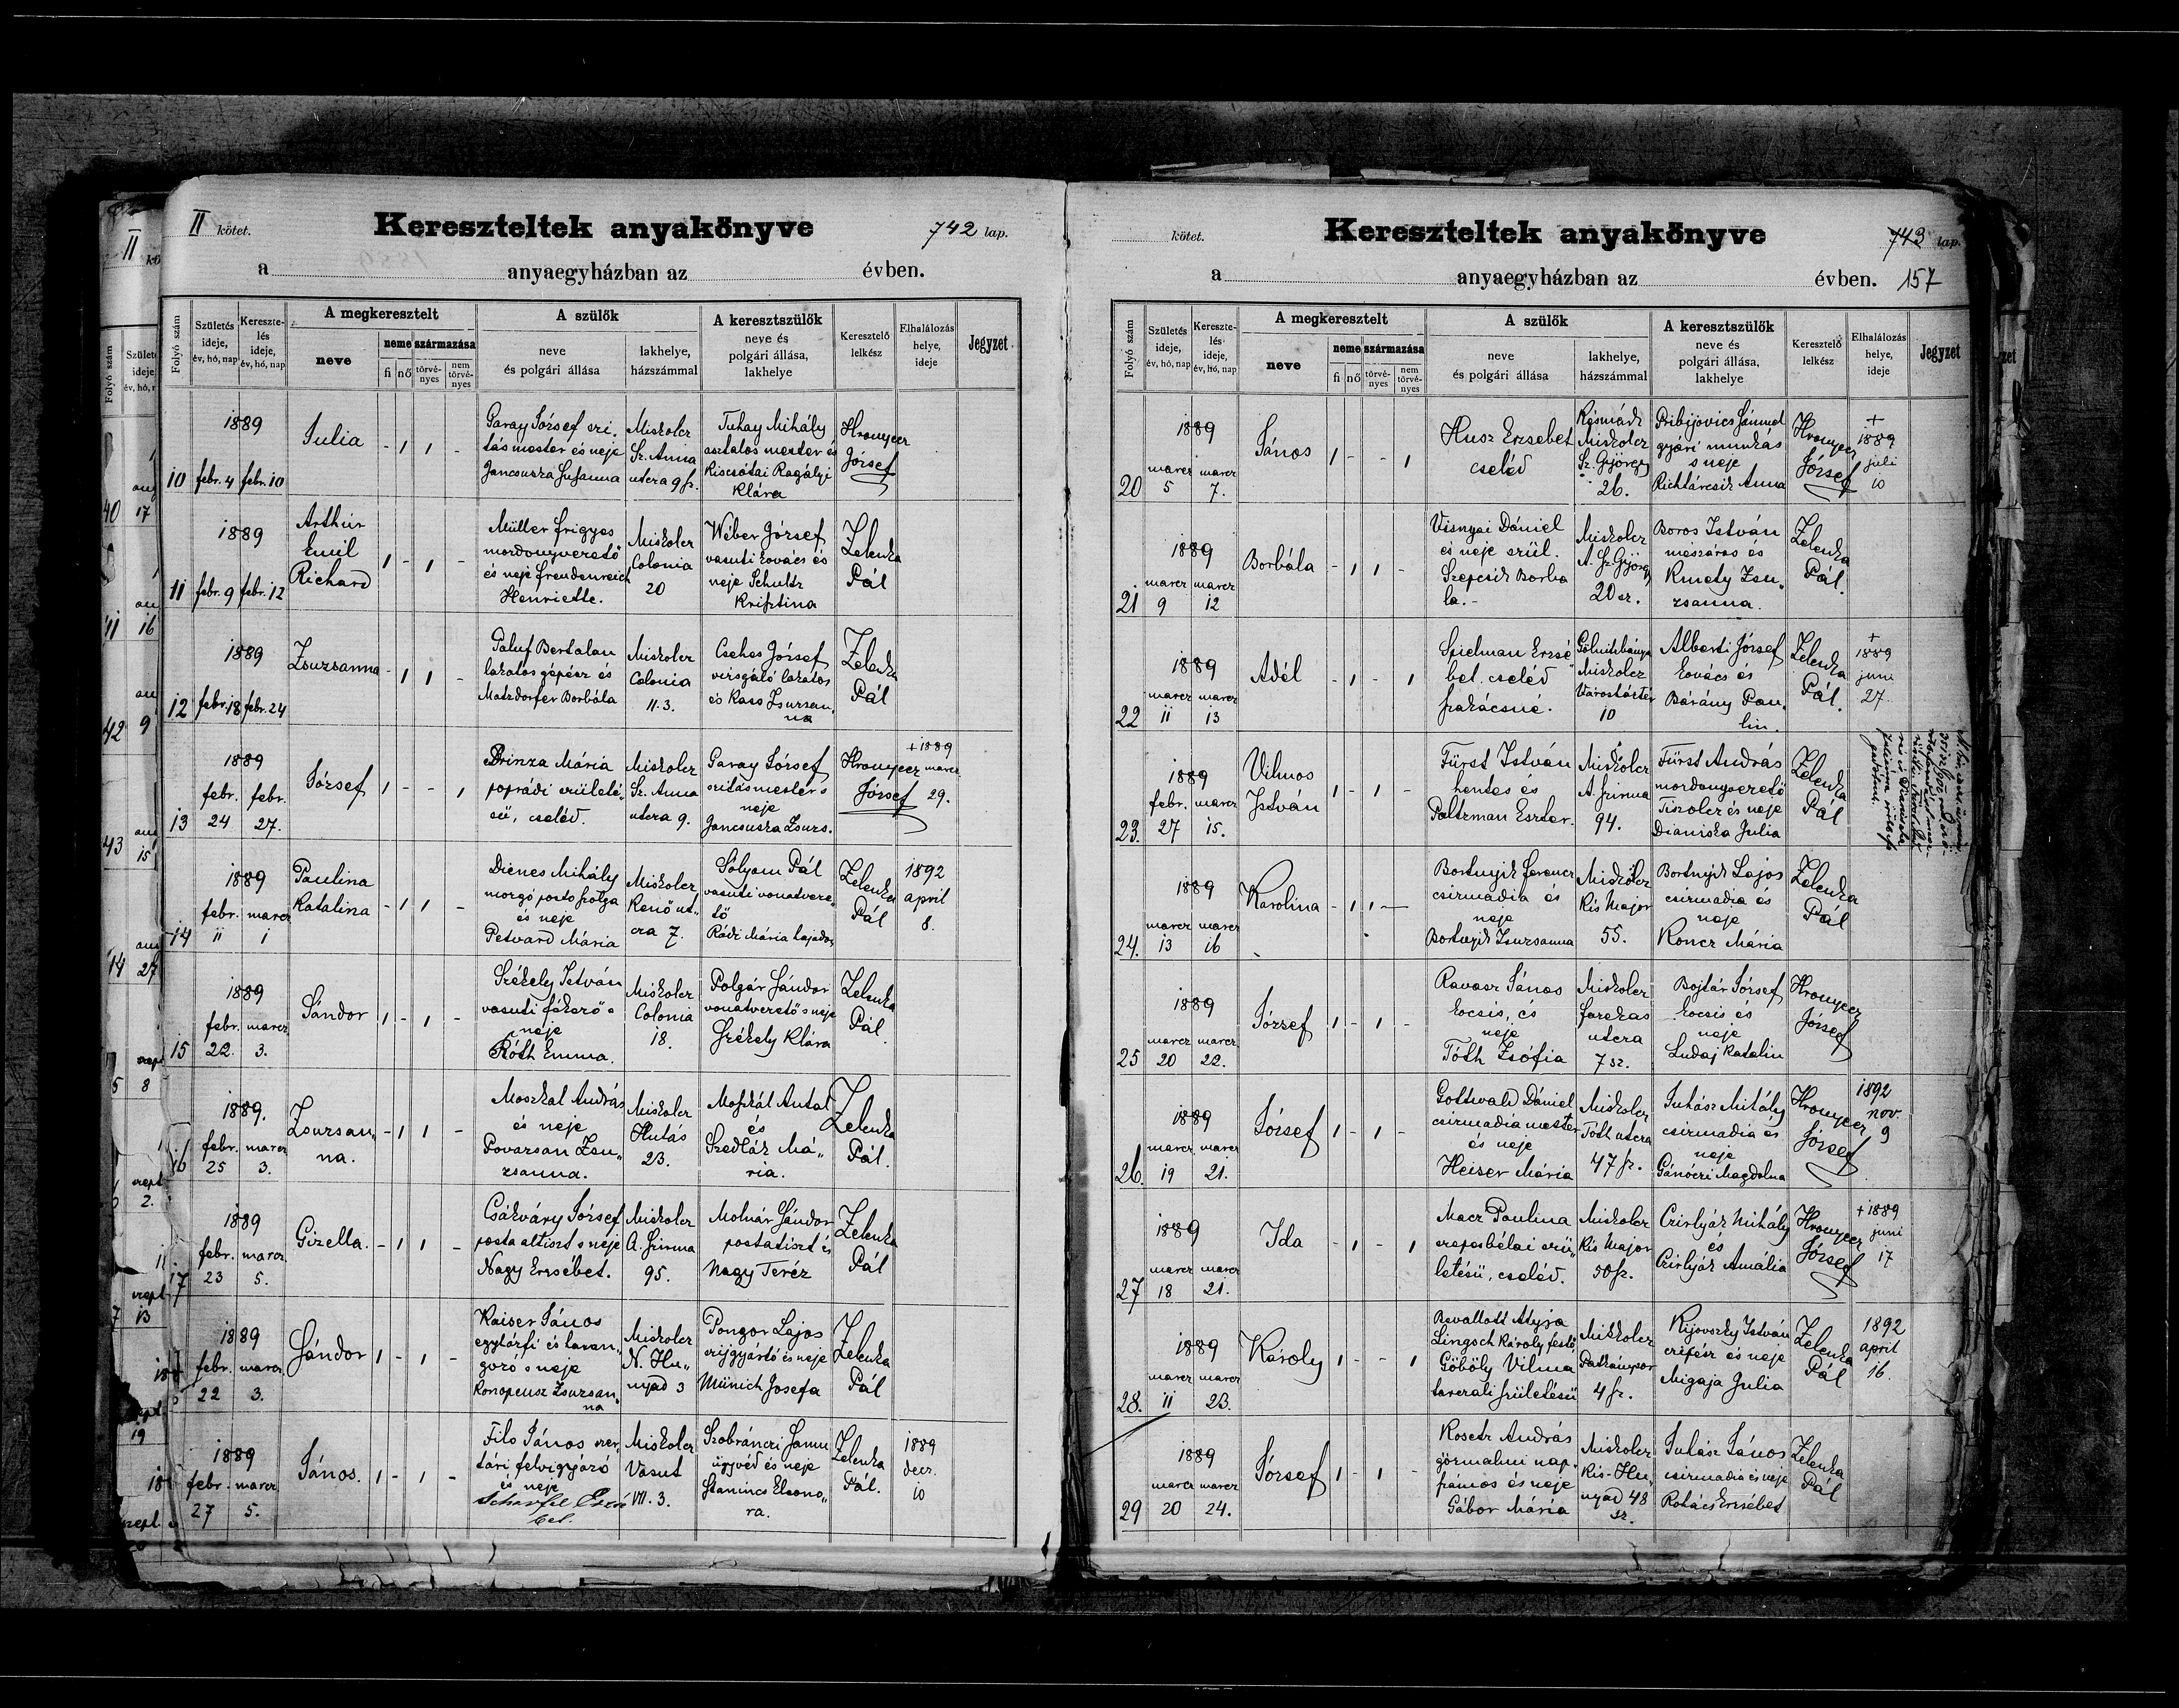 II kötet.
Kereszteltek anyakönyve
742 lap.
a anyaegyházban az évben.
Folyó szám
Születés ideje, év, hó, nap
Keresztelés ideje, év, hó, nap
A megkeresztelt
neve
neme
fi
nő
származása
törvényes
nem törvényes
A szülők
neve és polgári állása
lakhelye, házszámmal
A keresztszülők
neve és polgári állása, lakhelye
Keresztelő lelkész
Elhalálozás helye, ideje
Jegyzet
10 1889 febr. 4 febr. 10
Julia
- 1 1 -
Garay József szi-
tás mester és neje
Jancsuska Zsuzsanna
Miskolcz
Sz. Anna
utcza 9 sz.
Tuhay Mihály
asztalos mester és
Kiscsótai Ragályi
Klára
Hronyecz
József
11 1889 febr. 9 febr. 12
Arthur
Emil
Richard
1 - 1 -
Müller Frigyes
mozdonyvezető
és neje Freudenreich
Henriette.
Miskolcz
Colonia
20
Wéber József
vasuti kovács és
neje Schultz
Krisztina
Zelenka
Pál
12 1889 febr. 18 febr. 24
Zsuzsanna
- 1 1 -
Paluf Bertalan
lakatos gépész és
Matzdorfer Borbála
Miskolcz
Colonia
11. 3.
Csehes József
vizsgáló lakatos
és Kass Zsuzsan„
na
Zelenka
Pál
13 1889 febr. 24 febr. 27.
József
1 - - 1
Brinza Mária
poprádi születé„
sü, cseléd.
Miskolcz
Sz. Anna
utcza 9.
Garay József
szitásmester s
neje
Jancsuska Zsuzs.
Hronyecz
József
+ 1889
marcz
29.
14 1889 febr. 11 marcz 1
Paulina
Katalina
- 1 1 -
Dienes Mihály
mozgó posta szolga
és neje
Petvard Mária
Miskolcz
Kenő ut„
cza 7.
Sólyom Pál
vasuti vonatveze„
tő
Rádi Mária hajadon
Zelenka
Pál
1892
april
8.
15 1889 febr. 22. marcz 3.
Sándor
1 - 1 -
Székely István
vasuti fékező s
neje
Róth Emma.
Miskolcz
Colonia
18.
Polgár Sándor
vonatvezető s neje
Székely Klára
Zelenka
Pál.
16 1889. febr. 25 marcz 3.
Zsuzsan„
na.
- 1 1 -
Moszkal András
és neje
Povazsan Zsu„
zsanna.
Miskolcz
Hutás
23.
Moszkál Antal
és
Szedlák Má„
ria.
Zelenka
Pál.
17 1889 febr. 23 marcz 5.
Gizella.
- 1 1 -
Csákváry József
posta altiszt s neje
Nagy Erzsébet.
Miskolcz
A. Szinva
95.
Molnár Sándor
postatiszt és
Nagy Teréz
Zelenka
Pál
18 1889 febr. 22 marcz 3.
Sándor
1 - 1 -
Kaiser János
egyházfi és haran„
gozó s neje
Konopeusz Zsuzsan„
na
Miskolcz
N. Hu„
nyad 3
Pongor Lajos
szijgyártó és neje
Münich Josefa
Zelenka
Pál
1889 febr. 27 marcz 5.
János.
1 - 1 -
Filo János szer„
tári felvigyázó
és neje
bet.
Miskolcz
Vasut
VII. 3.
Szobránczi Samu
ügyvéd és neje
Stanincs Eleono„
ra.
Zelenka
Pál.
1889
decz.
10
kötet.
Kereszteltek anyakönyve
743 lap.
a anyaegyházban az évben. 157
Folyó szám
Születés ideje, év, hó, nap
Keresztelés ideje, év, hó, nap
A megkeresztelt
neve
neme
fi
nő
származása
törvényes
nem törvényes
A szülők
neve és polgári állása
lakhelye, házszámmal
A keresztszülők
neve és polgári állása, lakhelye
Keresztelő lelkész
Elhalálozás helye, ideje
Jegyzet
20 1889 marcz 5 marcz 7.
János
1 - - 1
Husz Erzsebet
cseléd
Késmárk
Miskolcz
Sz. György
26.
Pribijovics Sámuel
gyári munkas
s neje
Richtárcsik Anna
Hronyecz
József
+
1889
juli
10
21 1889 marcz 9 marcz 12
Borbála
- 1 1 -
Visnyai Dániel
és neje szül.
Szepcsik Borba
la.-
Miskolcz
A. Sz. György
20 sz.
Boros István
mészáros és
Kmety Zsu„
zsanna.
Zelenka
Pál.
22 1889 marcz 11 marcz 13
Adél
- 1 - 1
Spielman Erzsé„
bet. cseléd
szakácsné.
Gölnitzbánya
Miskolcz
Városháztér
10
Alberti József
kovács és
Bárány Pau„
lin.
Zelenka
Pál.
+
1889
juni
27.
23. 1889 febr. 27 marcz 15.
Vilmos
István
1 - 1 -
Fürst István
hentes és
Paltzman Eszter.
Miskolcz
A. szinva
94.
Fürst András
mozdonyvezető
Tiszolcz és neje
Dianiska Julia
Zelenka
Pál
24. 1889 marcz 13 marcz 16
Karolina
- 1 1 -
Bortnyik Ferencz
csizmadia és
neje
Bortnyik Zsuzsanna
Miskolcz
Kis Major
55.
Bortnyik Lajos
csizmadia és
neje
Koncz Mária
Zelenka
Pál
25 1889 marcz 20 marcz 22.
József
1 - 1 -
Ravasz János
kocsis, és
neje
Tóth Zsófia
Miskolcz
farkas
utcza
7 sz.
Bojtár József
kocsis és
neje
Ludaj Katalin
Hronyecz
József
26. 1889 marcz 19 marcz 21.
József
1 - 1 -
Gottwald Dániel
csizmadia mester
és neje
Heiser Mária
Miskolcz
Tóth utcza
47 sz.
Juhász Mihály
csizmadia és
neje
Gánóczi Magdolna
Hronyecz
József
1892
nov.
9
27 1889 marcz 18 marcz 21.
Ida
- 1 - 1
Macz Paulina
szepesbélai szü„
letésü, cseléd.
Miskolcz
Kis Major
50 sz.
Czirlyák Mihály
és
Czirlyák Amália
Hronyecz
József
+ 1889
juni
17
28. 1889 marcz 11 marcz 23.
Károly
1 - - 1
Bevallott Atyja
Lingsch Károly festő
Göböly Vilma
tarczali születésü
Miskolcz
Patkánysor
4 sz.
Kijovszky István
czipész és neje
Migaja Julia
Zelenka
Pál
1892
april
16.
29 1889 marcz 20 marcz 24.
József
1 - 1 -
Kosetz András
gőzmalmi nap„
számos és neje
Gábor Mária
Miskolcz
Kis-Hu„
nyad 48
sz.
Juhász János
csizmadia és neje
Kovács Erzsébet
Zelenka
Pál